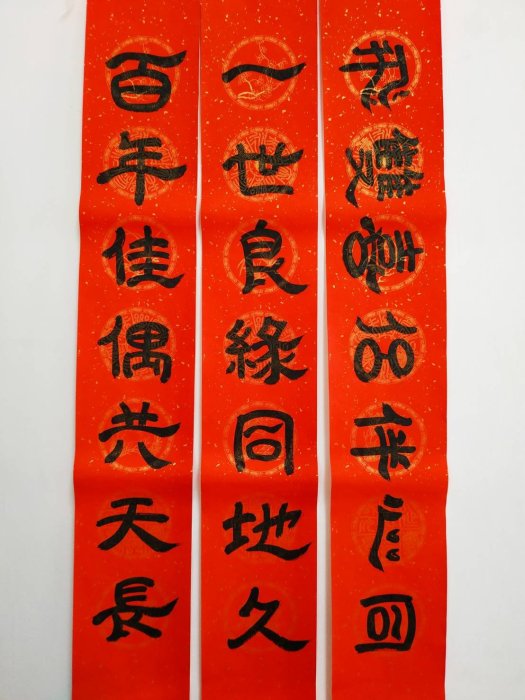 同心伴侶喜雙飛
一世良緣同地久
百年佳偶共天長